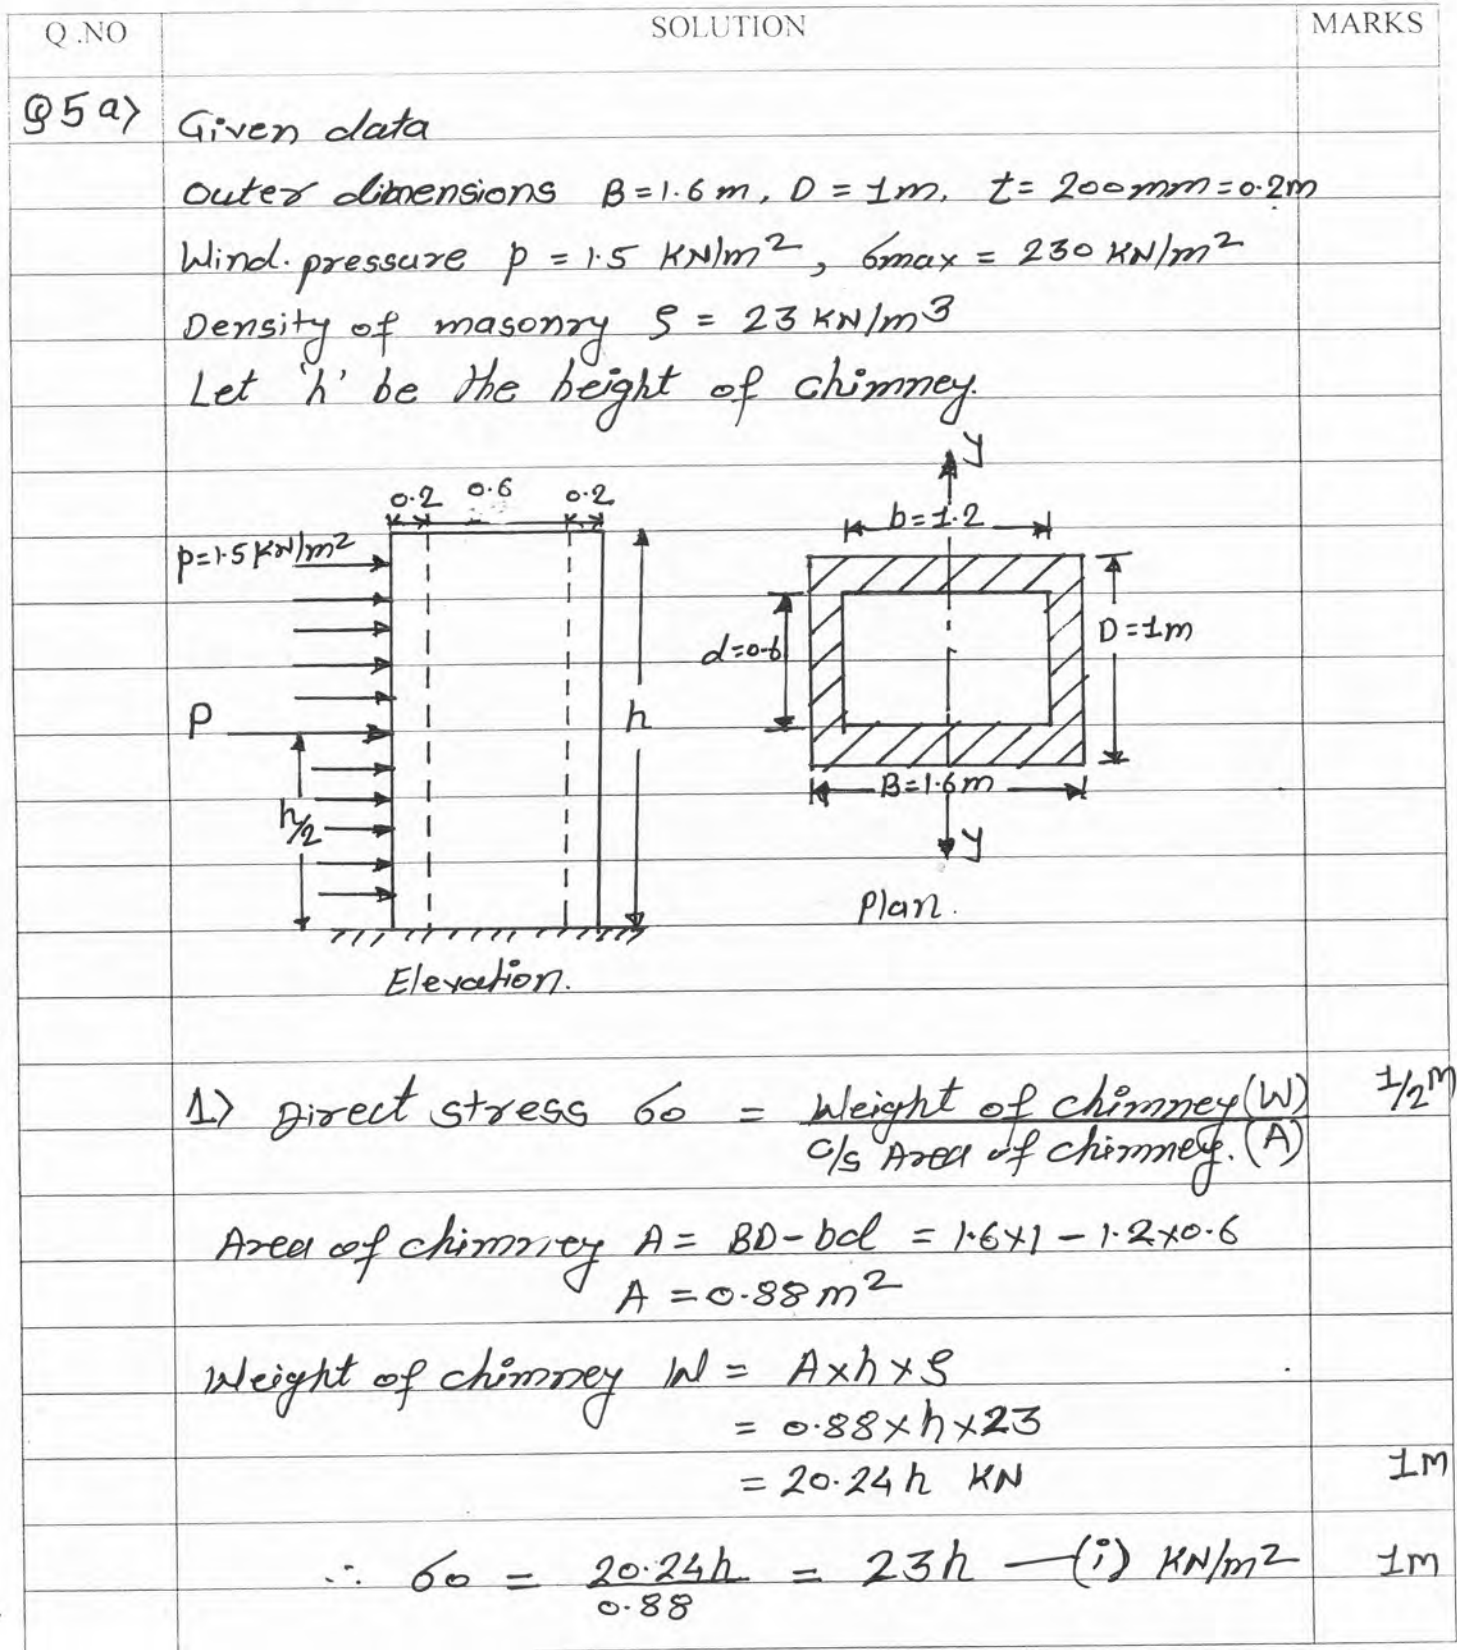 Q.NO SOLUTION MARKS
Q5 a) Given data
Outer dimensions B=1.6m, D=1m, t=200mm=0.2m
Wind pressure p = 1.5 KN/m², σmax = 230 KN/m²
Density of masonry ρ = 23 KN/m3
Let 'h' be the height of chimney.
0.2 0.6 0.2
p=1.5 KN/m²
P
h/2
h
Elevation.
y
b=1.2
d=0.6
D=1m
B=1.6m
y
Plan.
1) Direct stress σo = Weight of chimney(W) 1/2M
C/s Area of chimney.(A)
Area of chimney A = BD-bd = 1.6×1 - 1.2×0.6
A = 0.88m²
Weight of chimney W = A×h×ρ
= 0.88×h×23
= 20.24h KN 1M
∴ σo = 20.24h = 23h —(i) KN/m² 1M
0.88